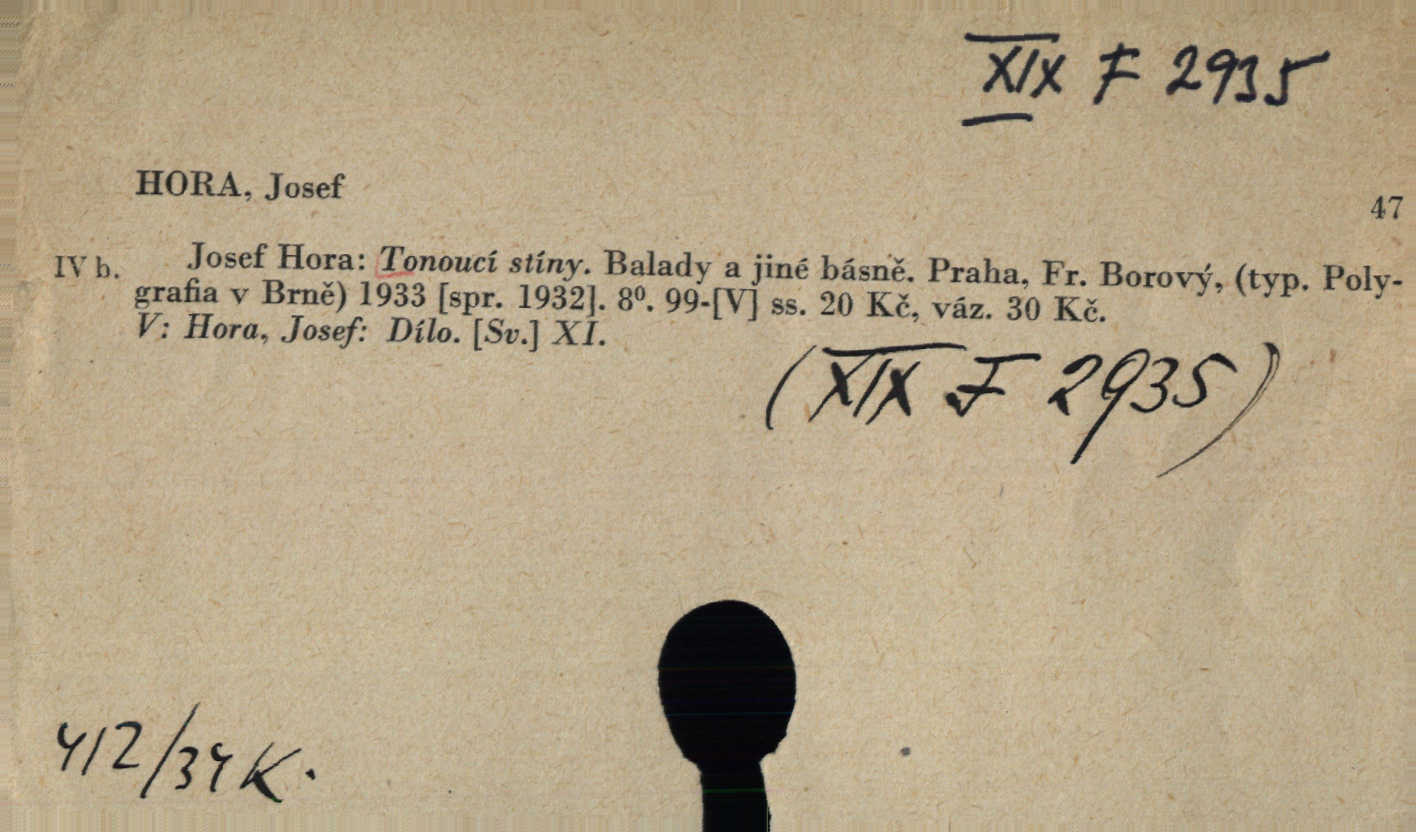 XIX F 2935
HORA, Josef
47
IV b. Josef Hora: Tonoucí stíny. Balady a jiné básně. Praha, Fr. Borový, (typ. Poly-
grafia v Brně) 1933 [spr. 1932]. 8⁰. 99-[V] ss. 20 Kč, váz. 30 Kč.
V: Hora, Josef: Dílo. [Sv.] XI.
(XIX F 2935)
412/34 K.